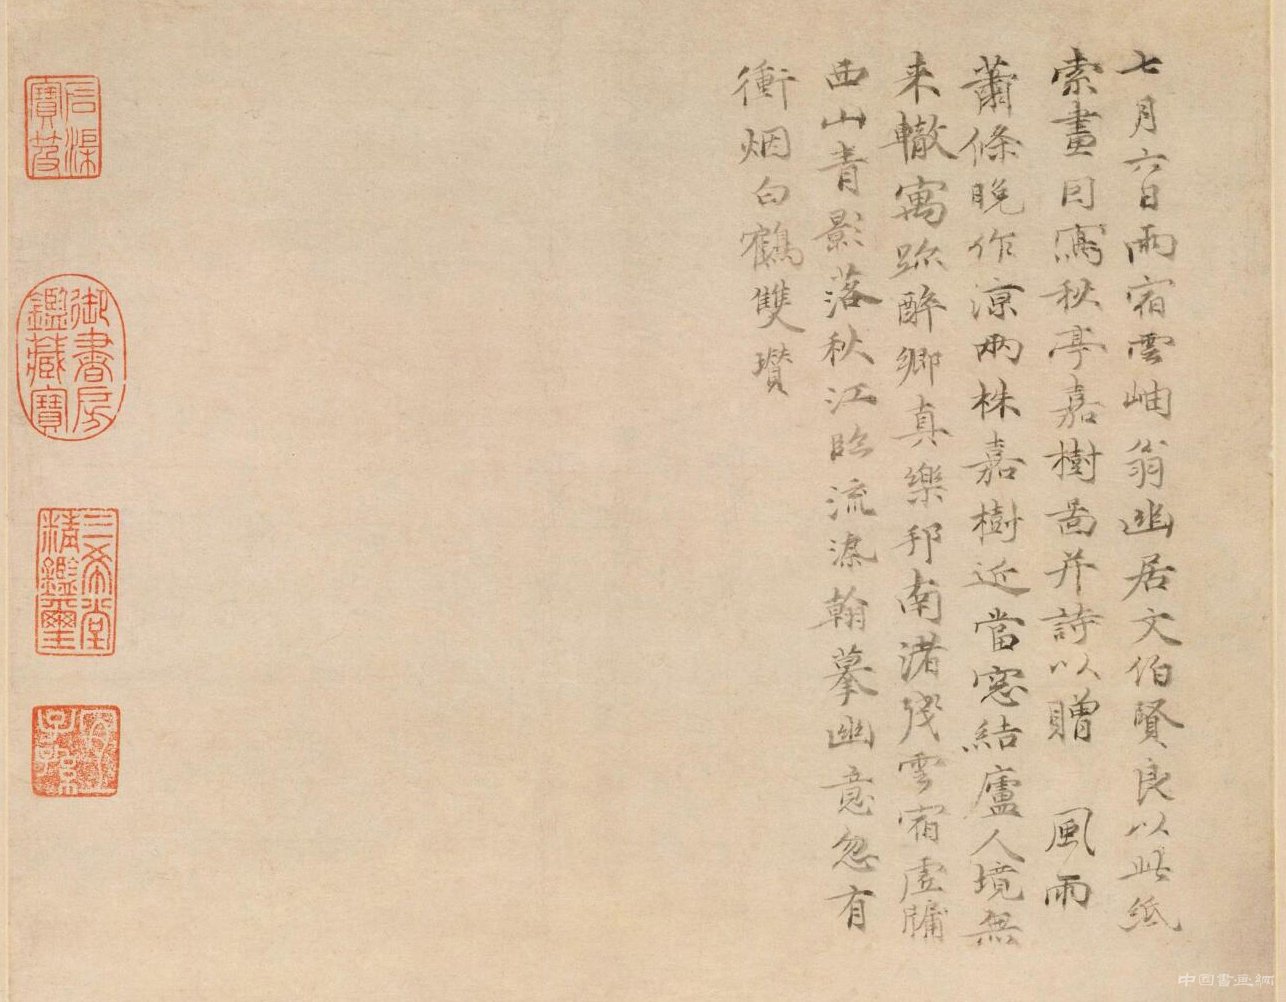 七月六日雨宿雲岫翁幽居文伯賢良以此紙
索畫因寫秋亭嘉樹啚并詩以贈 風雨
蕭條晚作涼兩株嘉樹近當窓結廬人境無
来轍寓跡醉鄉真樂邦南渚殘雲宿虛牖
西山青影落秋江臨流染翰摹幽意忽有
衝烟白鶴雙
信渠
寶笈
御書房
鑑藏寶
三希堂
精鑑璽
宜
子孫
中国書画網